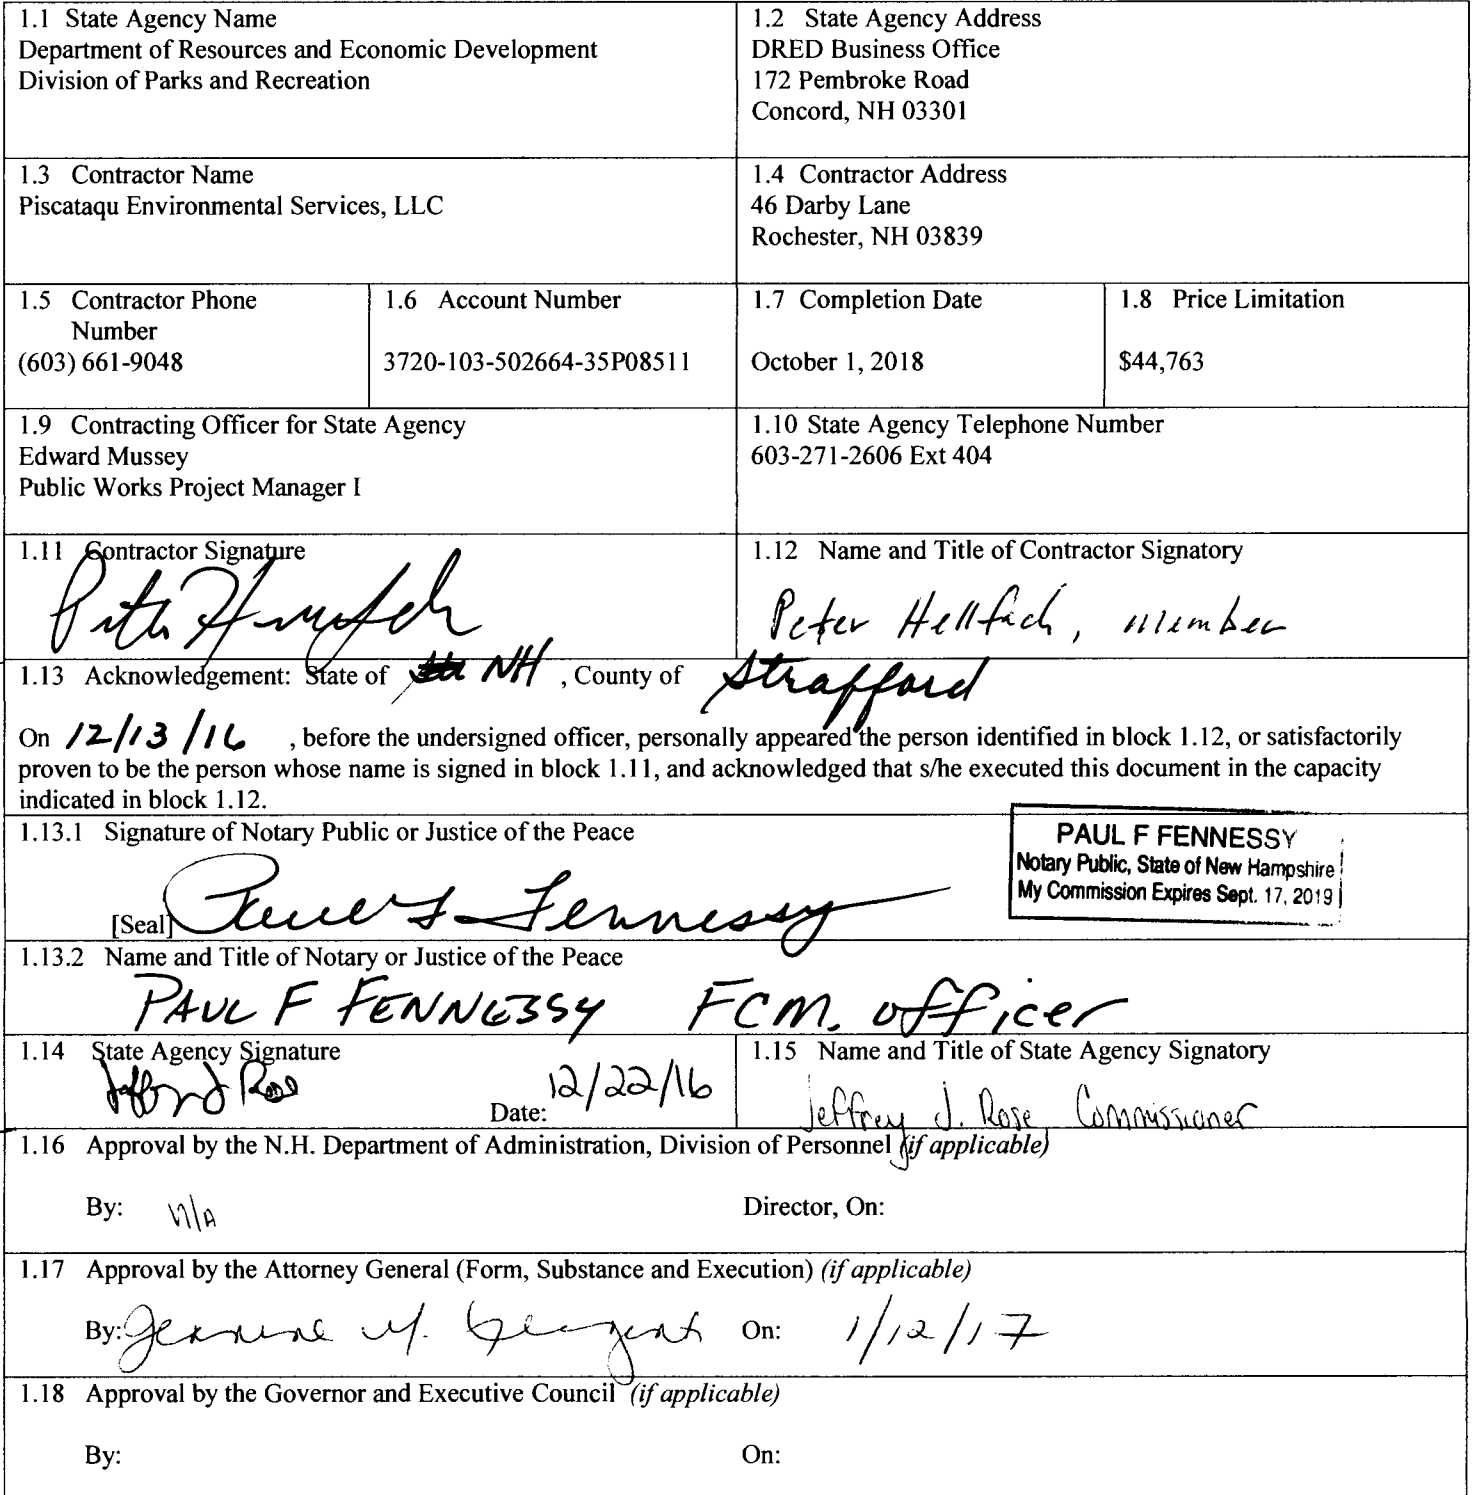 1.1 State Agency Name
Department of Resources and Economic Development
Division of Parks and Recreation
1.2 State Agency Address
DRED Business Office
172 Pembroke Road
Concord, NH 03301
1.3 Contractor Name
Piscataqu Environmental Services, LLC
1.4 Contractor Address
46 Darby Lane
Rochester, NH 03839
1.5 Contractor Phone
Number
(603) 661-9048
1.6 Account Number
3720-103-502664-35P08511
1.7 Completion Date
October 1, 2018
1.8 Price Limitation
$44,763
1.9 Contracting Officer for State Agency
Edward Mussey
Public Works Project Manager I
1.10 State Agency Telephone Number
603-271-2606 Ext 404
1.11 Contractor Signature
1.12 Name and Title of Contractor Signatory
Peter, member
1.13 Acknowledgement: State of NH, County of Strafford
On 12/13/16, before the undersigned officer, personally appeared the person identified in block 1.12, or satisfactorily
proven to be the person whose name is signed in block 1.11, and acknowledged that s/he executed this document in the capacity
indicated in block 1.12.
1.13.1 Signature of Notary Public or Justice of the Peace
PAUL F FENNESSY
Notary Public, State of New Hampshire
My Commission Expires Sept. 17, 2019
[Seal] Paul F Fennessy
1.13.2 Name and Title of Notary or Justice of the Peace
PAUL F FENNESSY FCM. officer
1.14 State Agency Signature
Date: 12/22/16
1.15 Name and Title of State Agency Signatory
Jeffrey J. Rose, Commissioner
1.16 Approval by the N.H. Department of Administration, Division of Personnel (if applicable)
By: N/A Director, On:
1.17 Approval by the Attorney General (Form, Substance and Execution) (if applicable)
By: On: 1/12/17
1.18 Approval by the Governor and Executive Council (if applicable)
By: On: